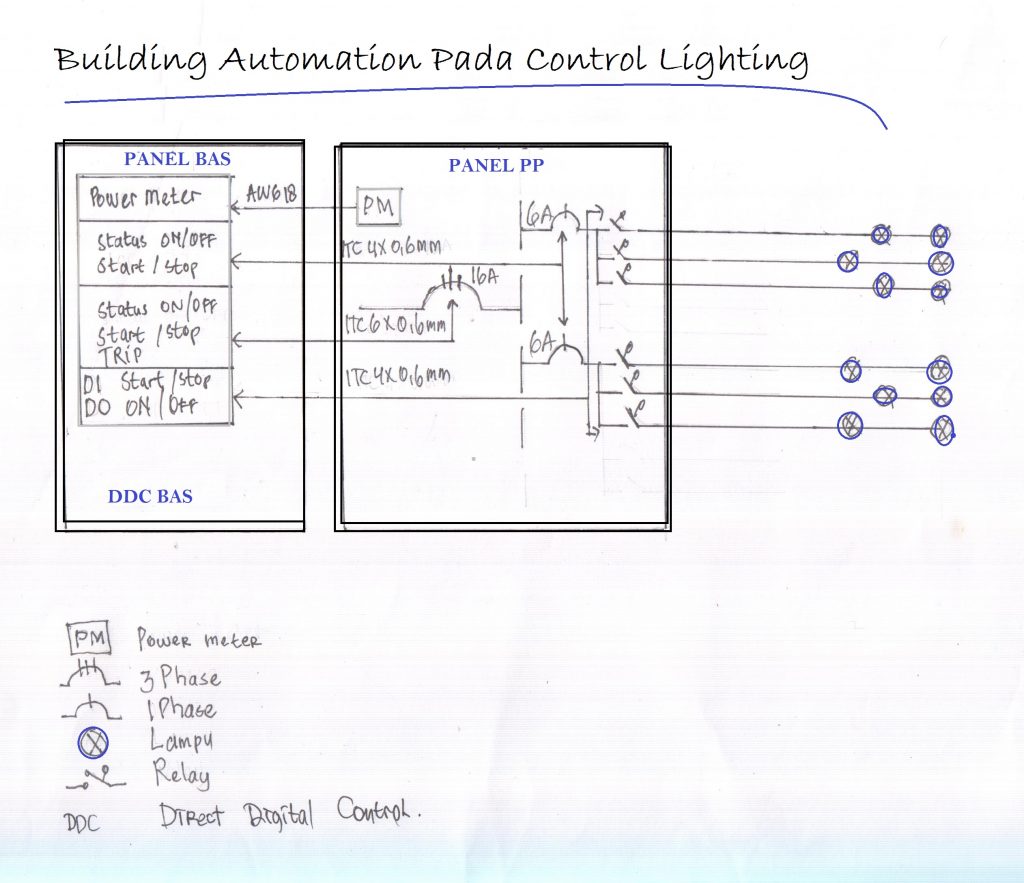 Building Automation Pada Control Lighting
PANEL BAS
Power meter
Status ON/OFF
Start / Stop
Status ON/OFF
Start / Stop
TRIP
DI Start / Stop
DO ON / OFF
DDC BAS
AWG 18
PANEL PP
PM
ITC 4X0,6mm
16A
ITC 6X0,6mm
ITC 4X0,6mm
6A
6A
PM Power meter
3 Phase
1 Phase
Lampu
Relay
DDC Direct Digital Control.